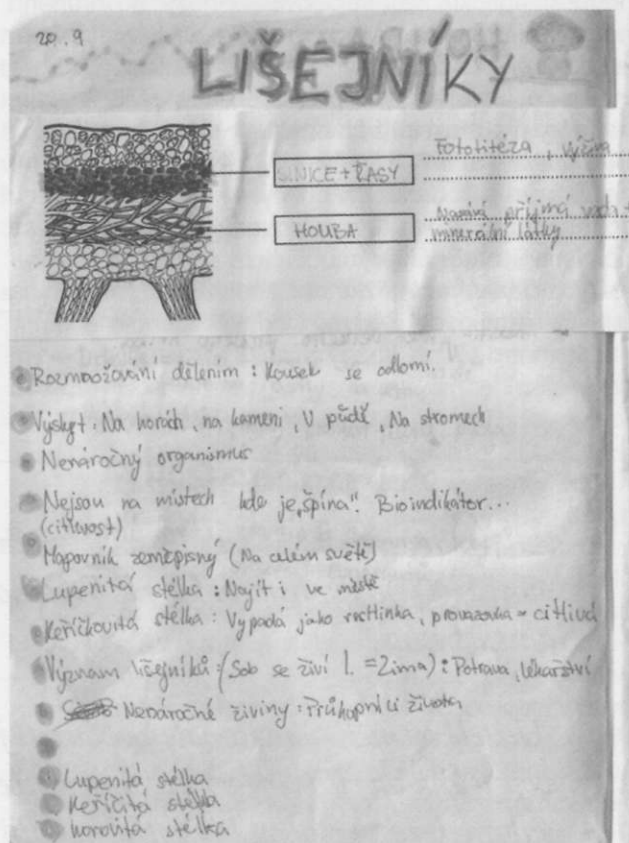 20.9
LIŠEJNÍKY
Fototitéza, výživa
SINICE + ŘASY
přijímá voda +
HOUBA
minerální látky
Rozmnožování dělením : kousek se odlomí.
Výskyt : Na horách, na kameni, V půdě, Na stromech
Nenáročný organismus
Nejsou na místech kde je „špína". Bioindikátor...
(citlivost)
Mapovník zeměpisný (Na celém světě)
Lupenitá stélka : Najít i ve městě
Keříčkovitá stélka : Vypadá jako rostlinka, provazovka = citlivá
Význam lišejníků : (Sob se živí l. = Zima) : Potrava, lékařství
Nenáročné živiny : Průkopníci života
Lupenitá stélka
Keříčitá stélka
korovitá stélka